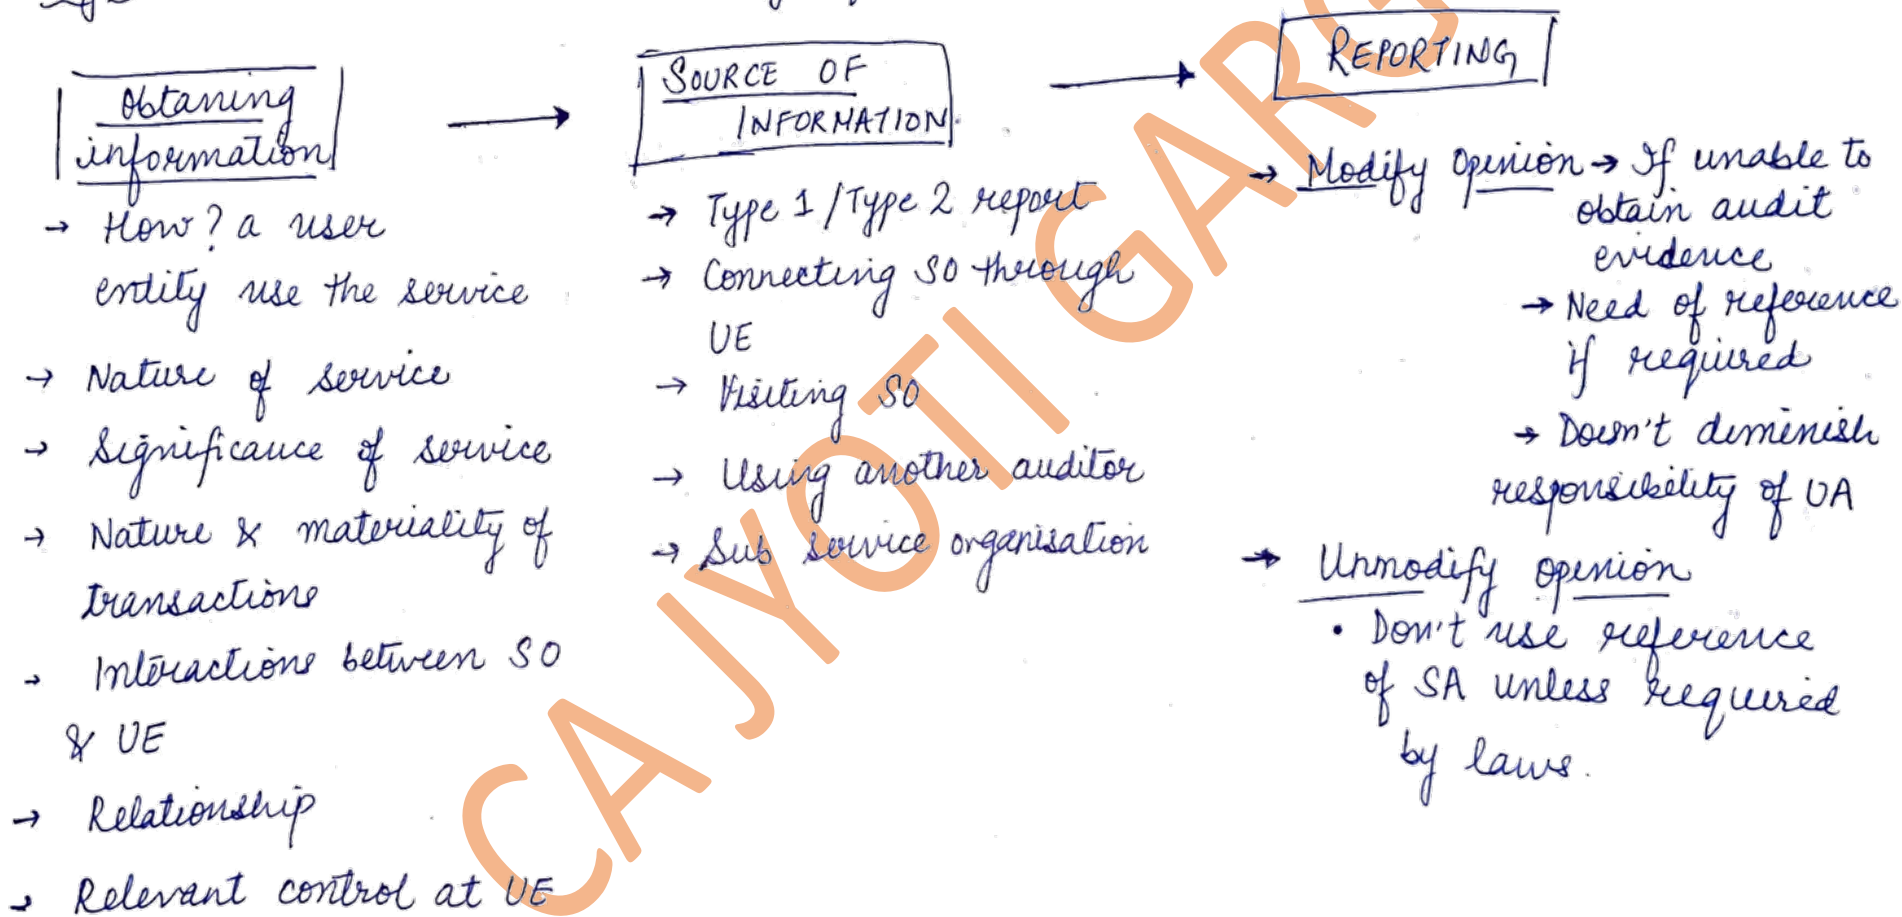 Obtaning
information
→ How? a user
entity use the service
→ Nature of service
→ Significance of service
→ Nature & materiality of
transactions
→ Interactions between SO
& UE
→ Relationship
→ Relevant control at UE
SOURCE OF
INFORMATION
→ Type 1 / Type 2 report
→ Connecting SO through
UE
→ Visiting SO
→ Using another auditor
→ Sub service organisation
REPORTING
→ Modify Opinion → If unable to
obtain audit
evidence
→ Need of reference
if required
→ Doesn't diminish
responsibility of UA
→ Unmodify opinion
• Don't use reference
of SA unless required
by laws.
CA JYOTI GARG